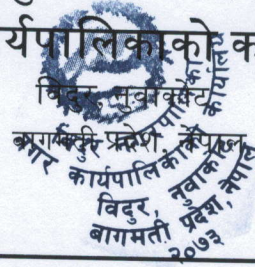 र्यपालिकाको क
विदुर, नुवाकोट
बागमती प्रदेश, नेपाल
कार्यपालिकाको कार्यालय
विदुर, नुवाकोट
बागमती प्रदेश, नेपाल
२०७३